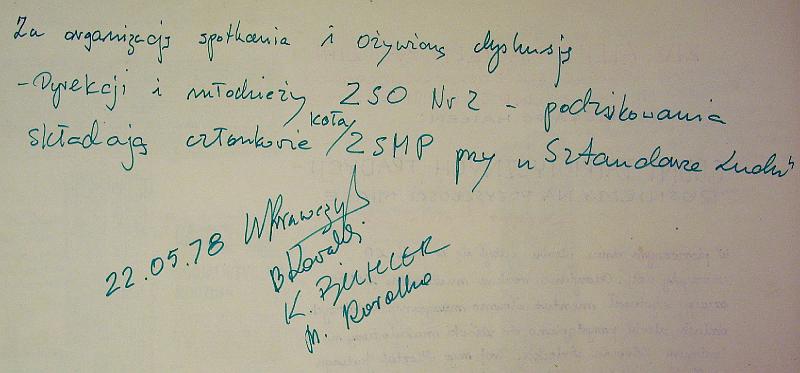 Za organizację spotkania i ożywioną dyskusję
– Dyrekcji i młodzieży ZSO Nr 2 – podziękowania
składają członkowie koła ZSMP przy „Sztandarze Ludu"
22.05.78 WKrawczyk
BKowal
K. BÜHLER
M.